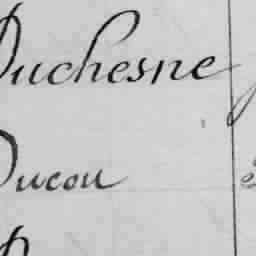 Duchesne
Ducou